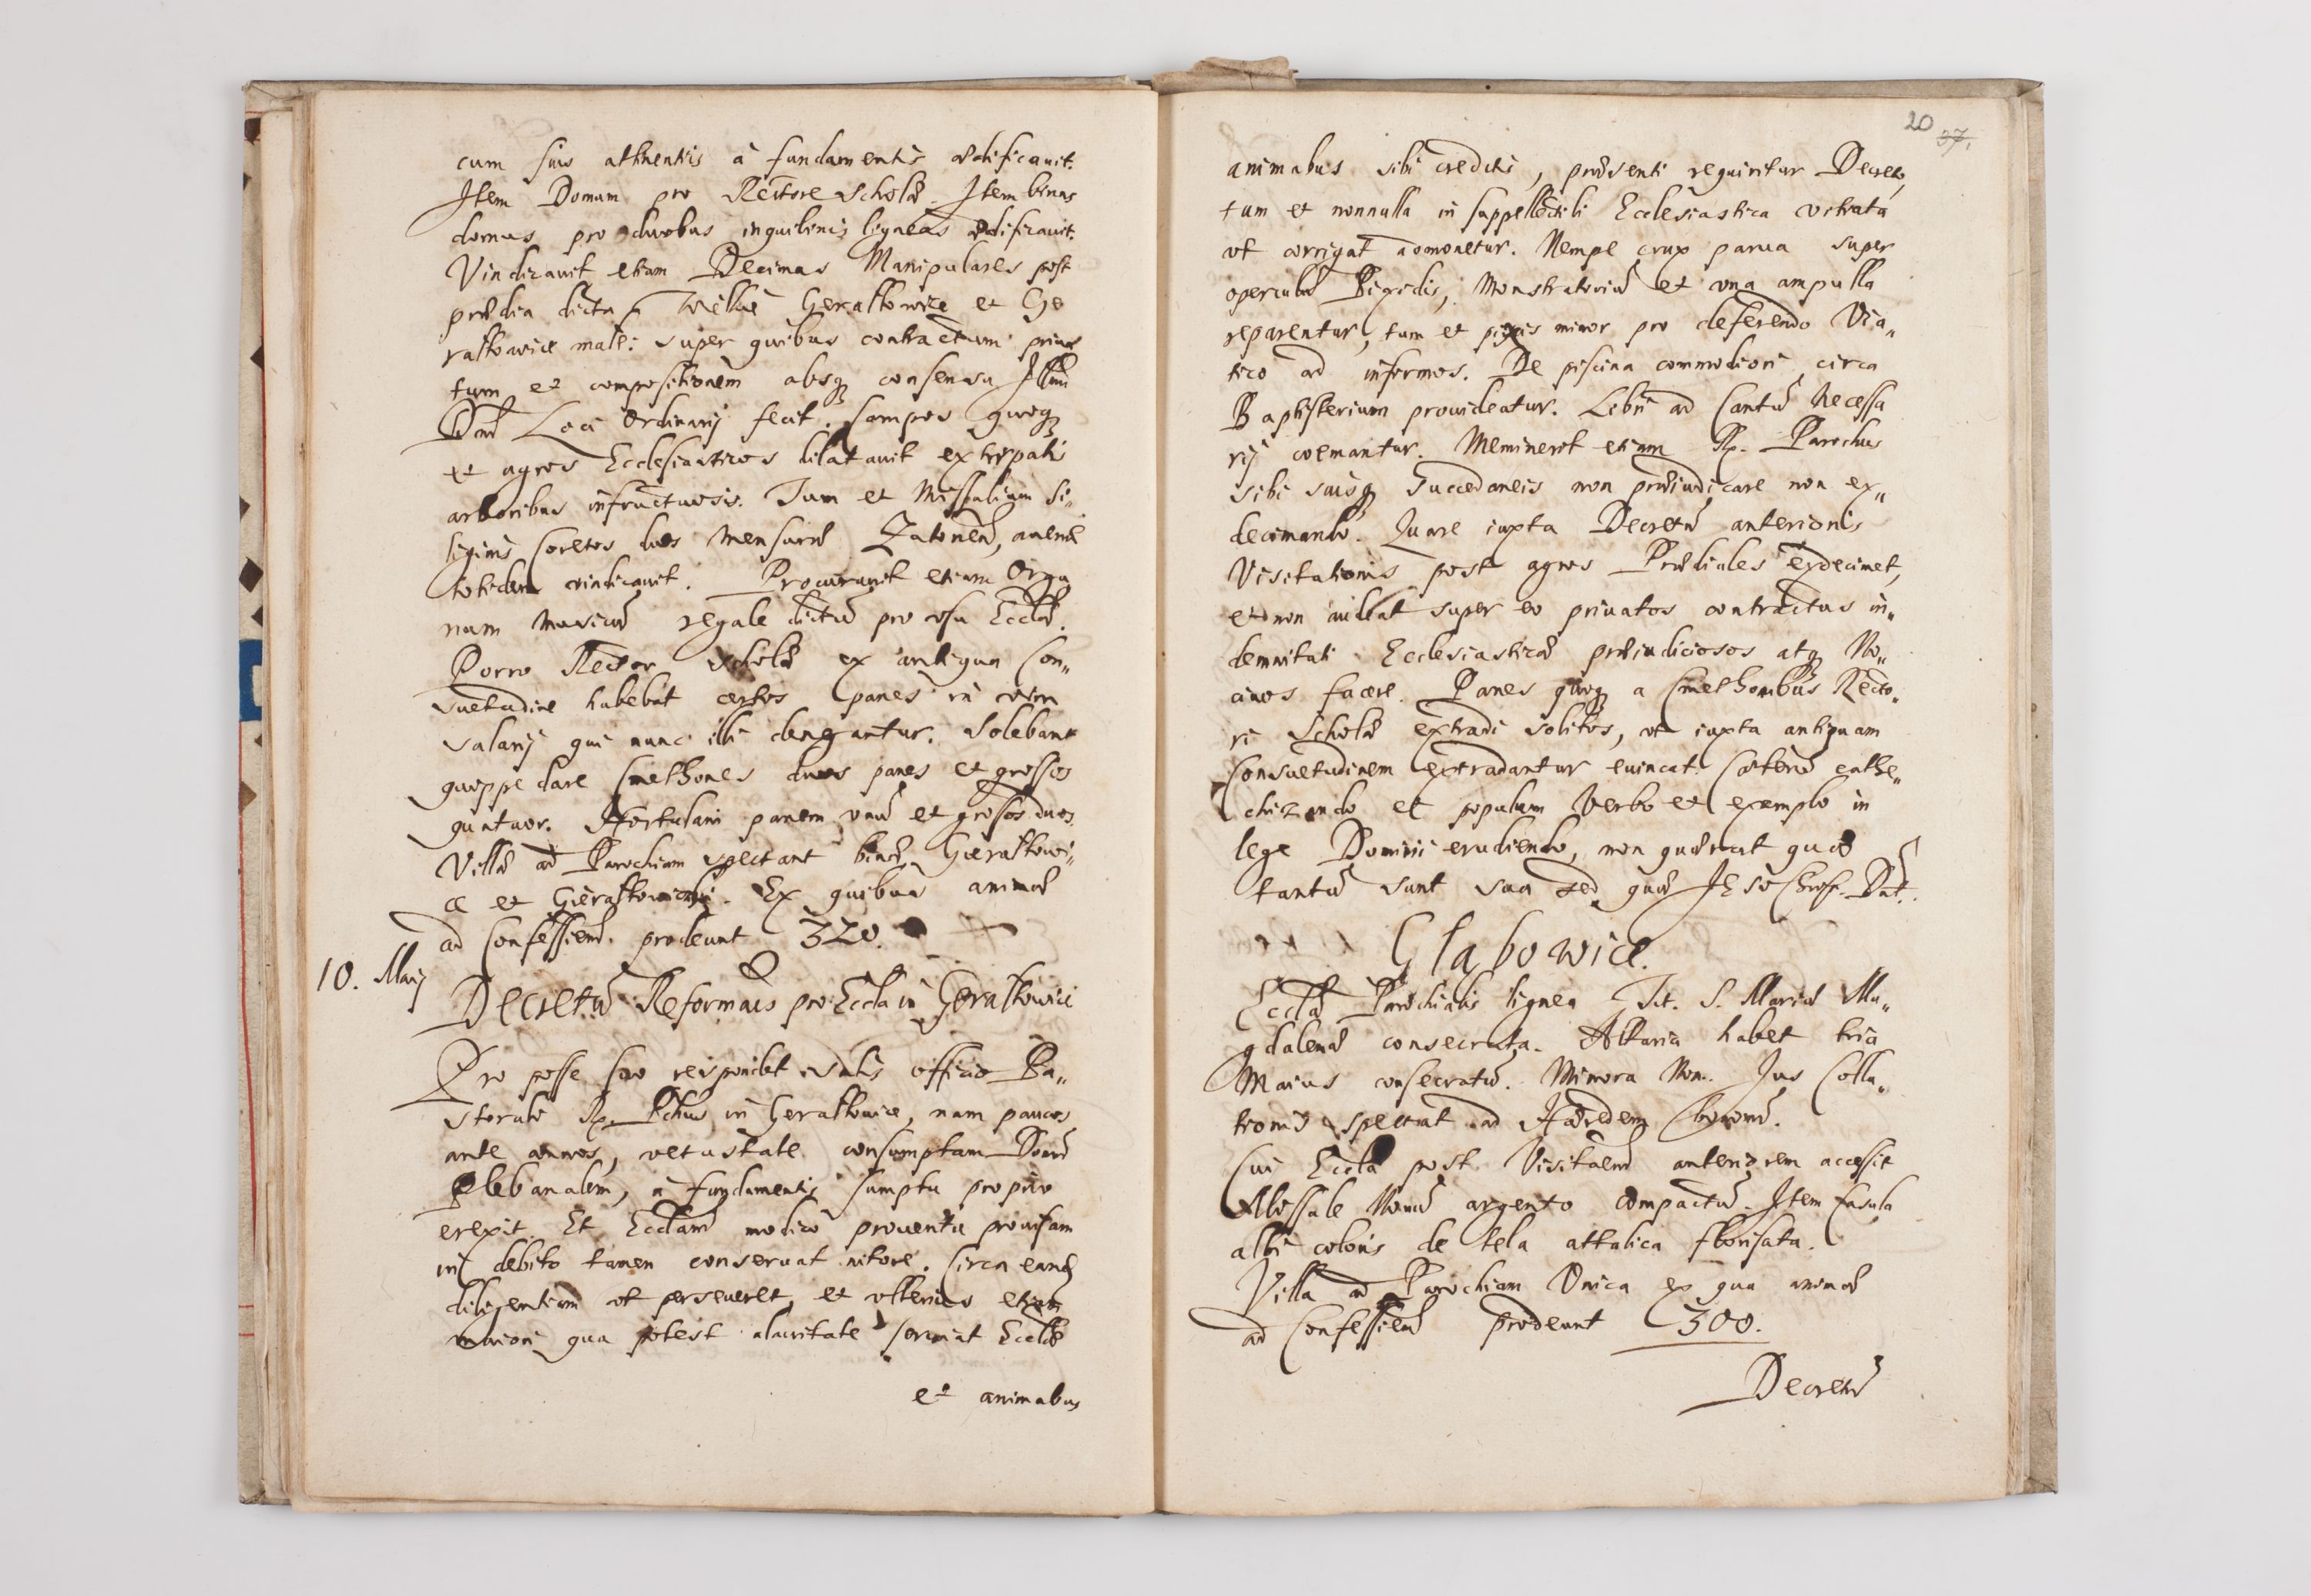 cum suis attinentiis à fundamentis ædificauit.
Item Domum pro Rectore Scholæ. Item binas
domus pro duobus inquilinis ligneas ædificauit.
Vindicauit etiam Decimas Manipulares post
prædia dicta Gierałtowice et Gie
rałtowice super quibus contractum priua
tum et compositionem absq consensu Illmi
Dni Loci Ordinarij fecit. Campos quoq
et agros Ecclesiasticos dilatauit extirpatis
arboribus infructuosis. Tum et Missalium si„
liginis coretos duos mensuræ Zatorien, auenæ
totidem vindicauit. Procurauit etiam Orga
num musicū regale dictū pro vsu Ecclæ.
Porro Rector Scholæ ex antiqua con„
suetudine habebat certos panes in vim
salarij qui nunc illi denegantur. Solebant
quippe dare Cmethones duos panes et grossos
quatuor. Hortulani panem vnū et grossos duos.
Villæ ad Parochiam spectant binæ, Gierałtowi„
ce et Gierałtowiczki. Ex quibus animæ
ad Confessionē prodeunt 320.
10. Maij
Decretū Reformaōis pro Eccla in Gerałtowice
Pro posse suo respondet satis officio Pa„
storali Rx. Pchus in Gerałtowice, nam paucos
ante annos, vetustate consumptam Domū
Plebanalem, à fundamentis sumptu proprio
erexit. Et Ecclam modico prouentu prouisam
in debito tamen conseruat nitore. Circa eand
diligentiam vt perseueret, et vlterius etiam
maiori qua potest alacritate seruiat Ecclæ
et animabus
20 37.
animabus sibi creditis, præsenti requiritur Decreto,
tum et nonnulla in suppellectili Ecclesiastica vitiata
vt corrigat admonetur. Nempe crux parua super
operculū Pixidis, Monstratoriū et vna ampulla
reparentur, tum et pixis minor pro deferendo Via„
tico ad infirmos. De piscina commodiori circa
Baptisterium prouideatur. Libri ad Cantū Necessa
rij coemantur. Meminerit etiam Rx. Parochus
sibi suisq Succedaneis non præiudicare non ex„
decimando. Quare iuxta Decretū anterioris
Visitationis post agros Prædiales exdecimet,
et non audeat super eo priuatos contractus in„
demnitati Ecclesiasticæ præiudiciosos atq No„
ciuos facere. Panes quoq a Cmethonibus Recto„
ri Scholæ extradi solitos, vt iuxta antiquam
Consuetudinem extradantur euincat. Cæterū cathe„
chizando et populum Verbo et exemplo in
lege Domini erudiendo, non quærat quæ
tantū sunt sua sed quæ Jesu Christi.
Głąbowice.
Eccla Parochialis lignea Tit. S. Mariæ Ma„
gdalenæ consecrata. Altaria habet tria
Maius consecratū. Minora Non. Jus Colla„
tionis spectat ad Hæredem bonorū.
Cui Ecclæ post Visitaōnē anteriorem accessit
Missale Nouū argento compactū. Item Casula
albi coloris de tela attalica florisata.
Villa ad Parochiam Vnica ex qua animæ
ad Confessionē prodeunt 300.
Decretū